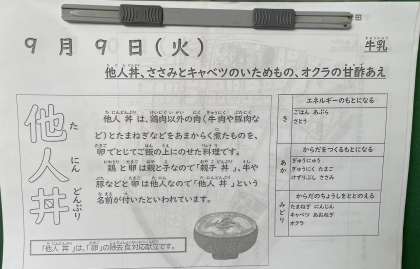 9月9日(火)
牛乳
他人丼、ささみとキャベツのいためもの、オクラの甘酢あえ
他人丼
た にん どんぶり
他人丼は、鶏肉以外の肉(牛肉や豚肉な
ど)とたまねぎなどをあまからく煮たものを、
卵でとじてご飯の上にのせた料理です。
鶏と卵は親と子なので「親子丼」、牛や
豚などと卵は他人なので「他人丼」という
名前が付いたといわれています。
「他人丼」は、「卵」の除去食対応献立です。
き
エネルギーのもとになる
ごはん あぶら
さとう
あか
からだをつくるもとになる
ぎゅうにゅう
ぎゅうにく たまご
けずりぶし ささみ
みどり
からだのちょうしをととのえる
たまねぎ にんじん
キャベツ あおねぎ
オクラ